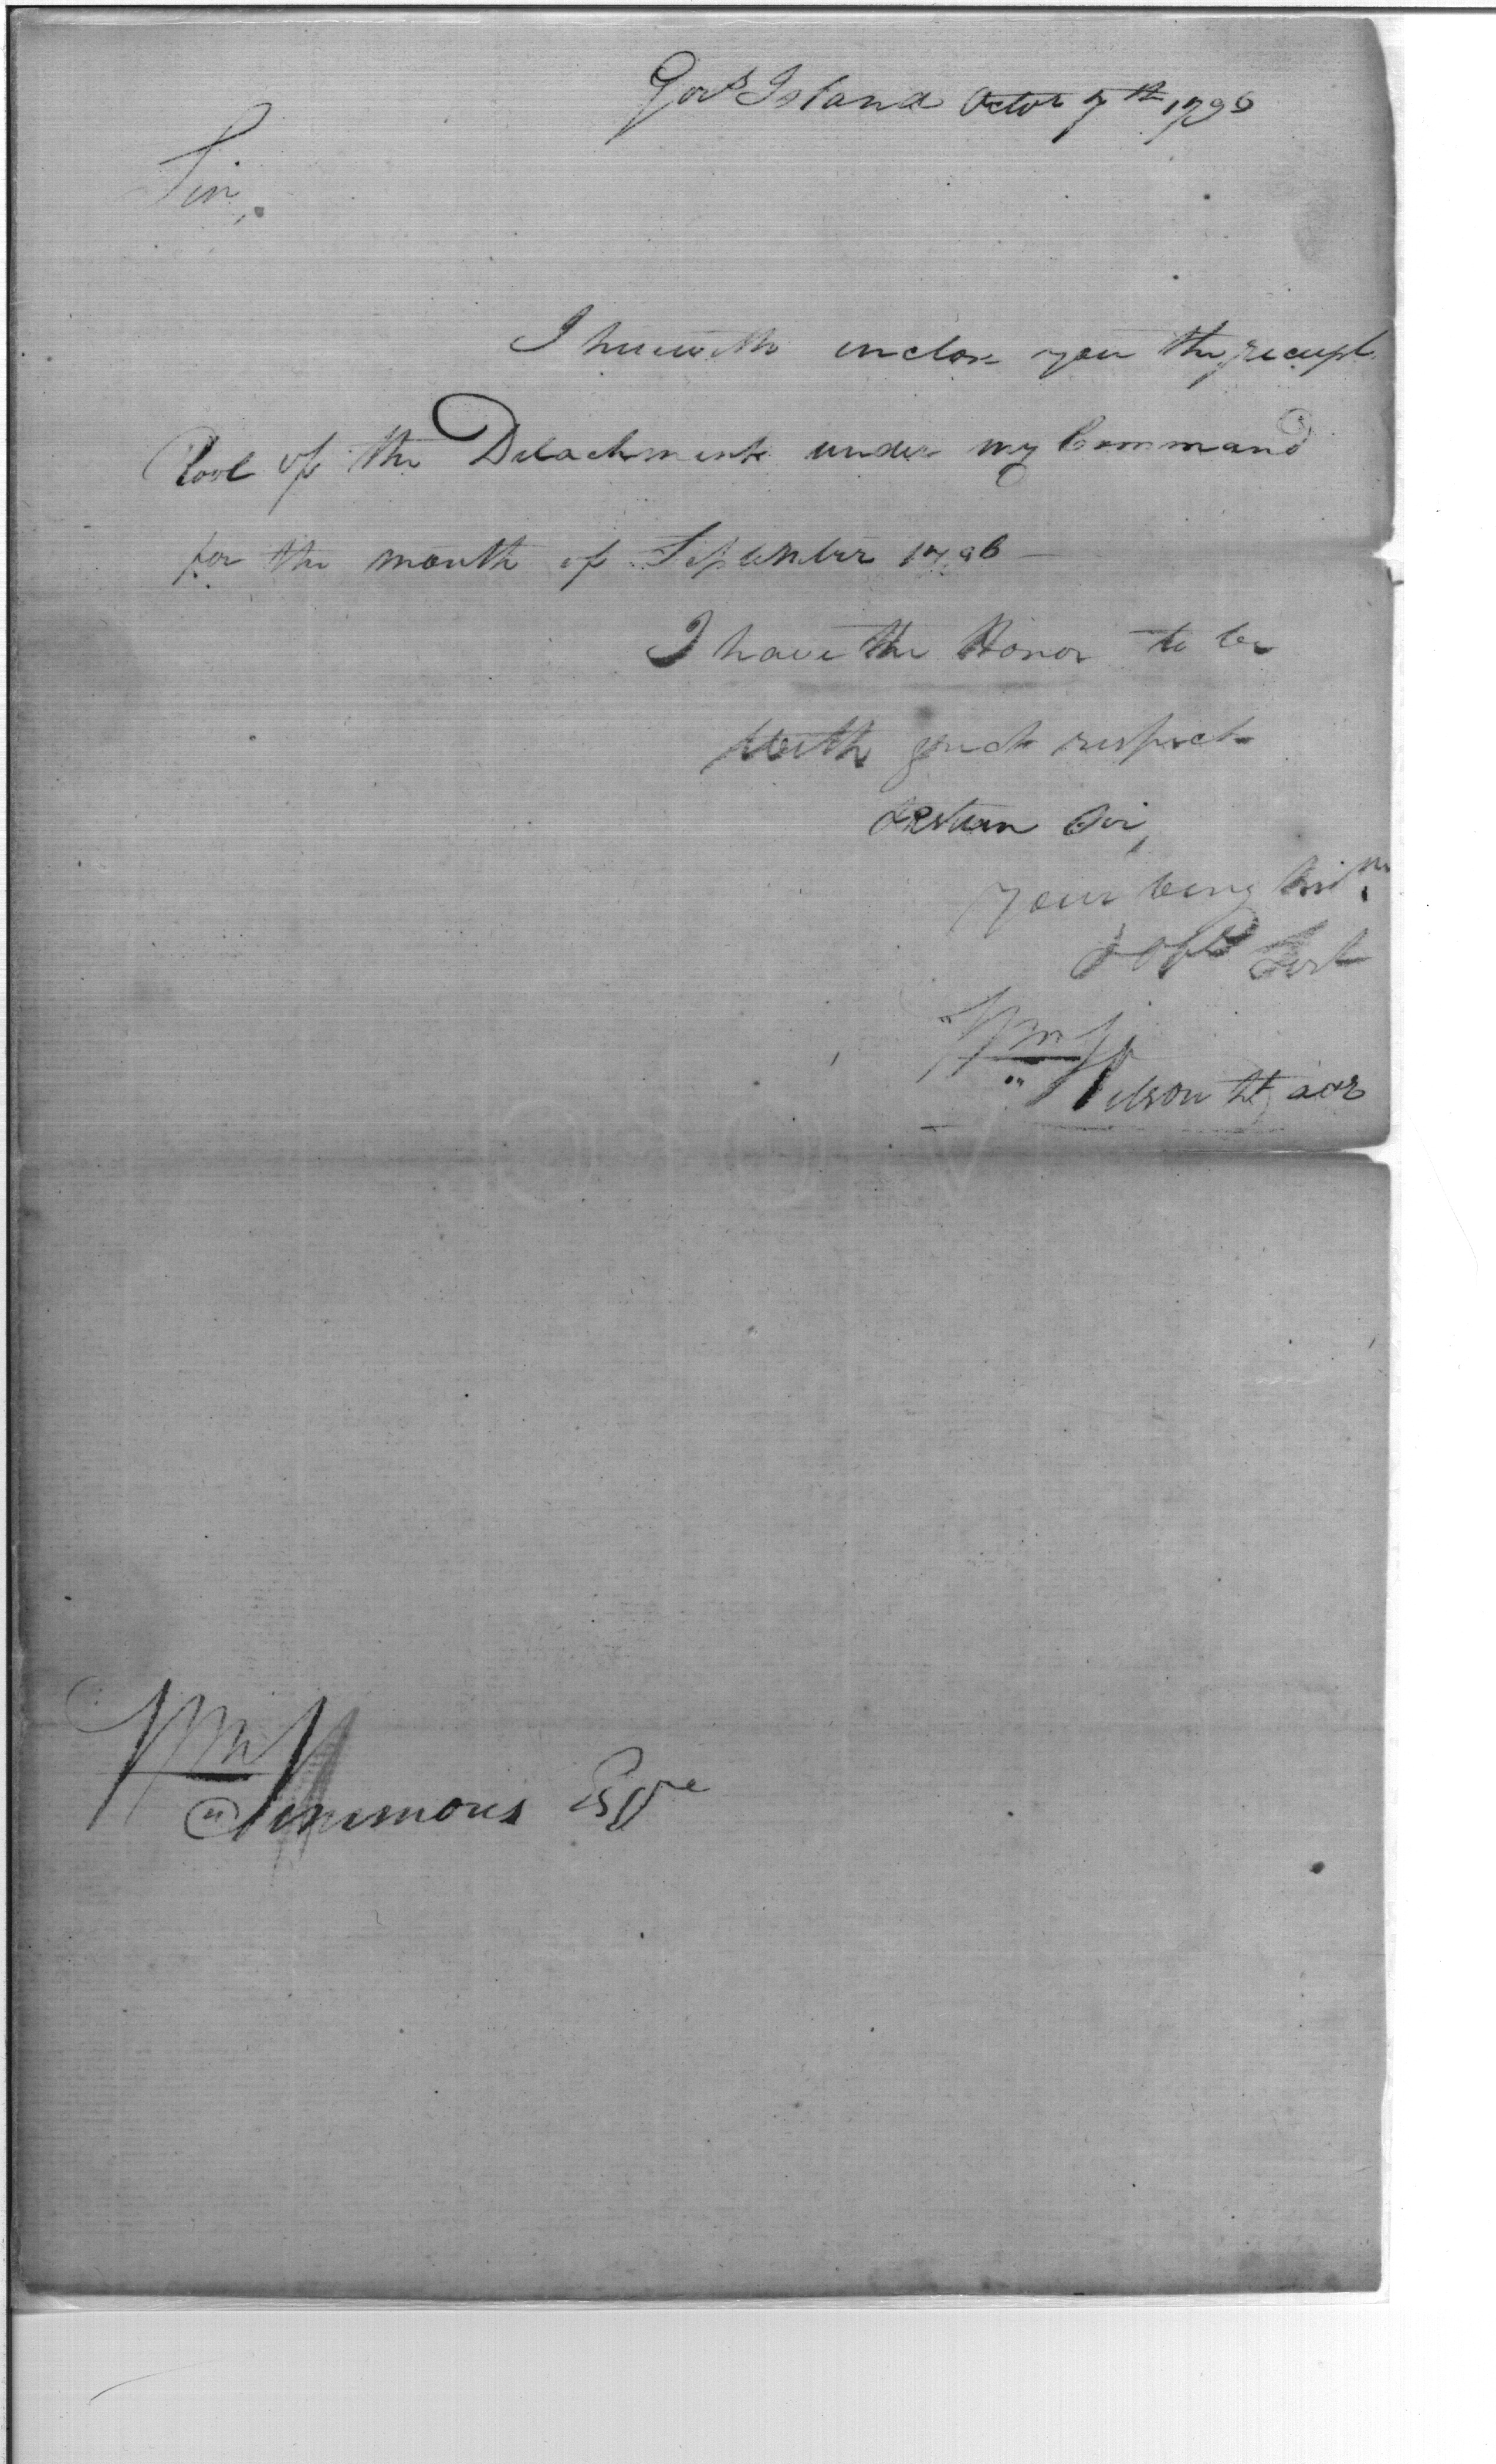 Govr Island Octor 7th 1796
Sir,
I herewith inclose you the receipt
Rool of the Detachment under my Command
for the month of September 1796 —
I have the Honor to be
With great respect
Esteem Sir,
your very Hum
& Obt Servt
Wm Wilson Lt
Wm Simmons Esqre